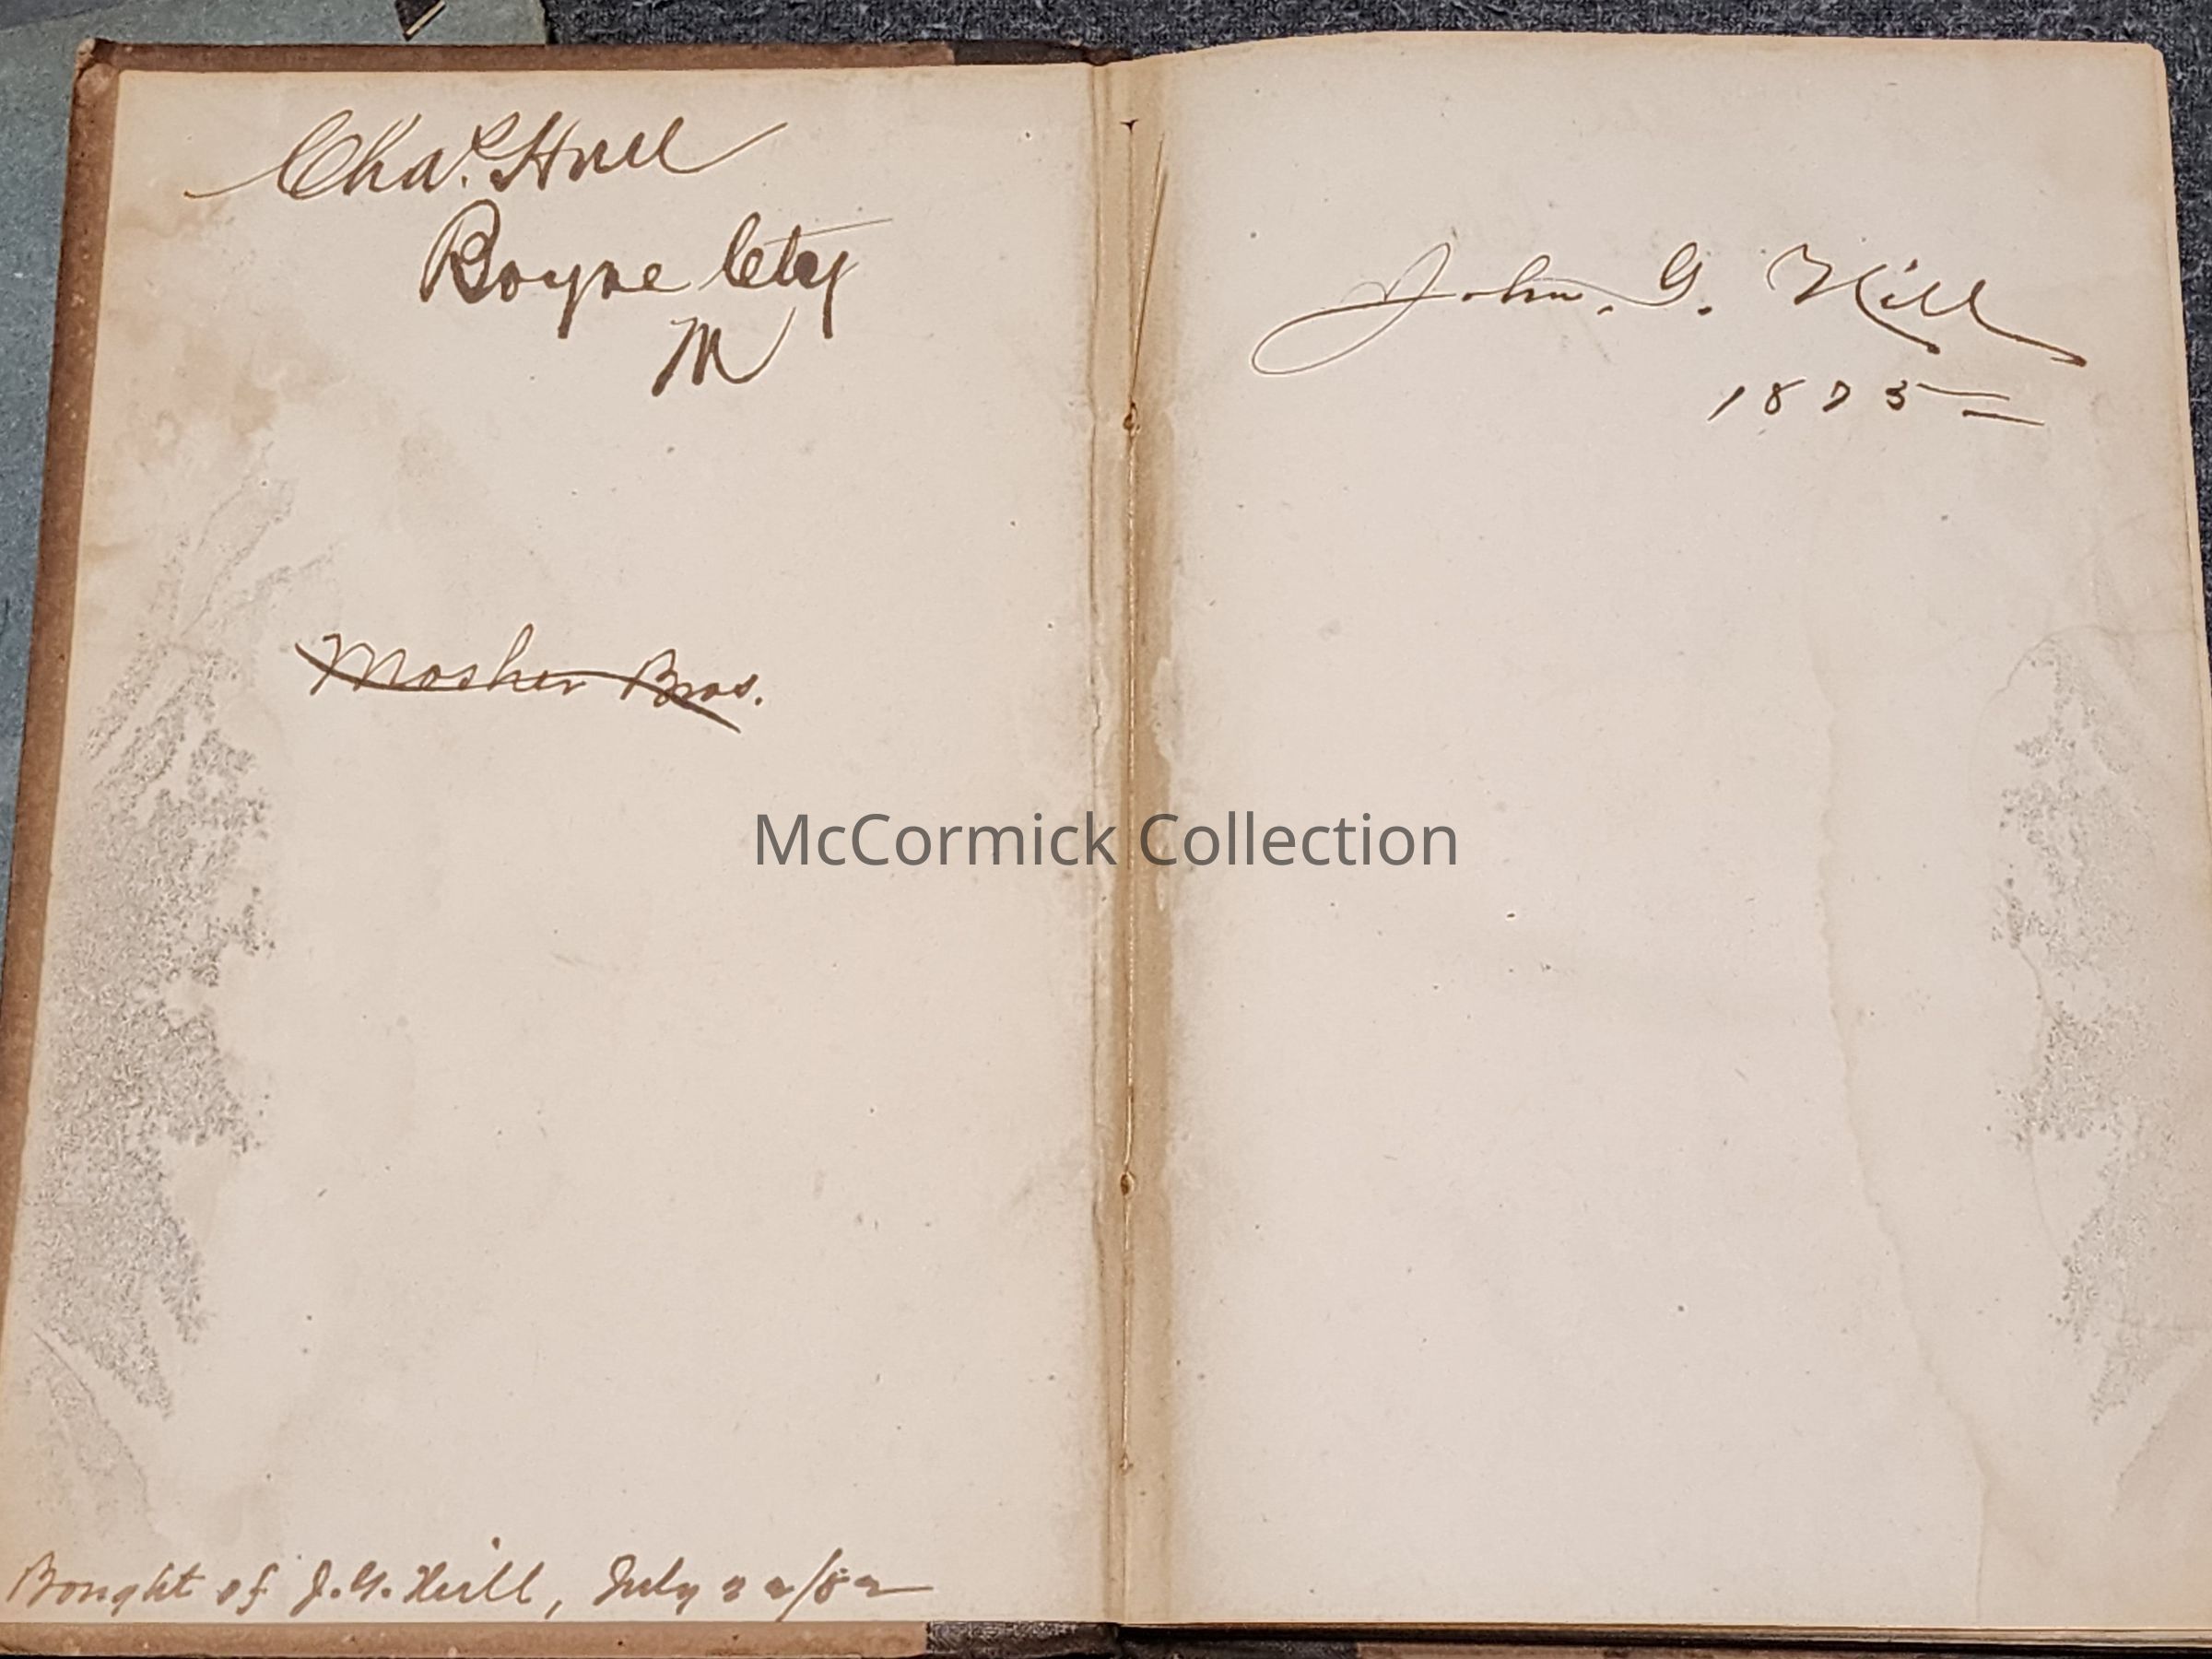 Chas. Hull
Boyne City
M
Mosher Bros.
Bought of J. G. Hill, July 22/82
John. G. Hill
1875
McCormick Collection